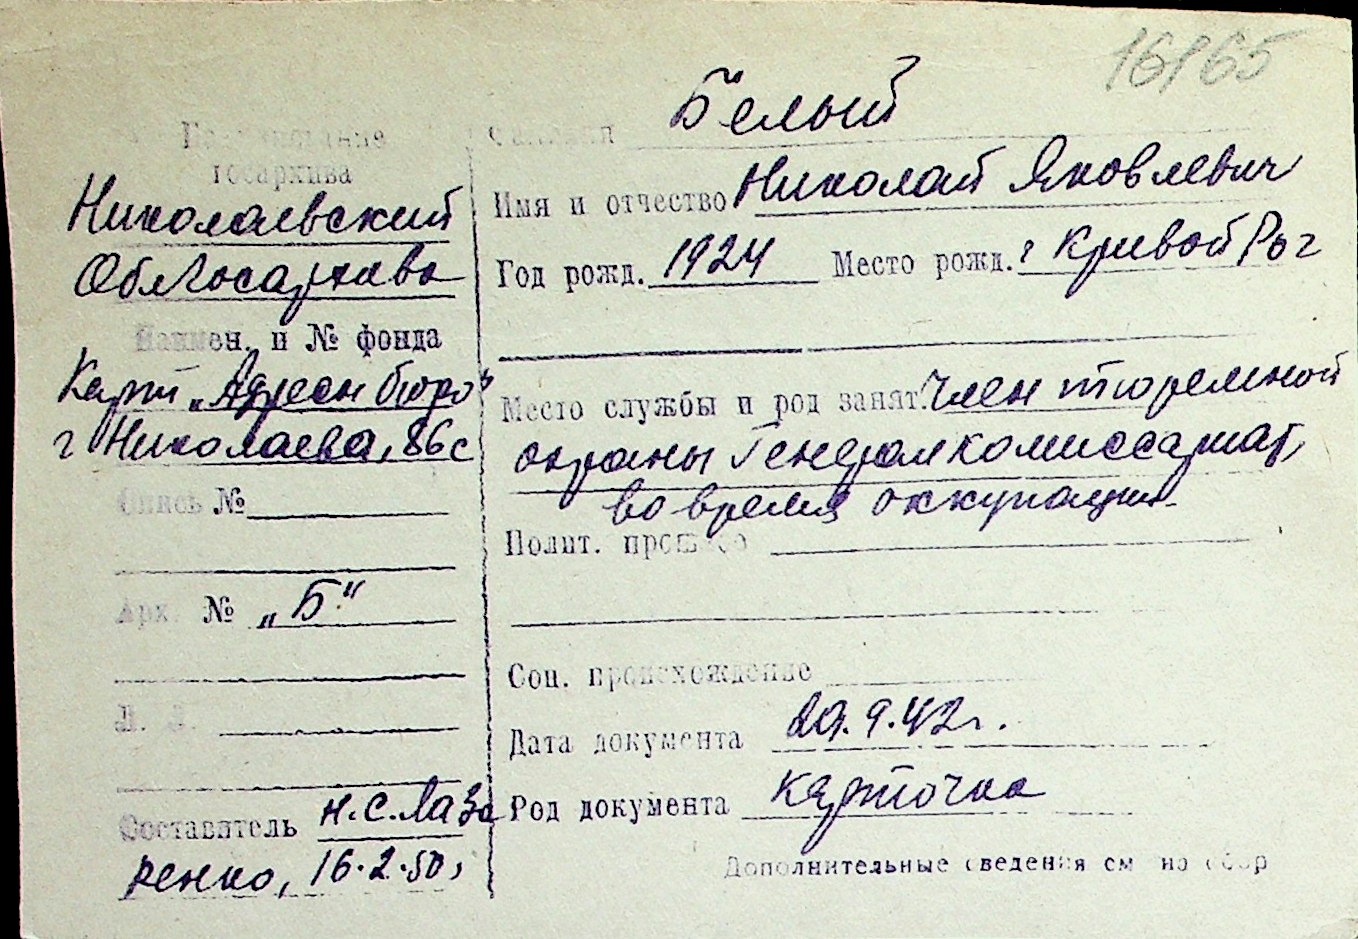 16165
Наименование
госархива
Николаевский
Облгосархив
Наимен. и № фонда
Карт „Адресн бюро"
г Николаева, 86с
Опись №
Арк. № „Б"
Л. Л.
Составитель Н.С.Лаза
ренко, 16.2.50,
Фамилия Белый
Имя и отчество Николай Яковлевич
Год рожд. 1924 Место рожд. г Кривой Рог
Место службы и род занят. Член тюремной
охраны Генералкомиссариат,
во время оккупации.
Полит. прошлое
Соц. происхождение
Дата документа 29.9.42г.
Род документа карточка
Дополнительные сведения см на обор